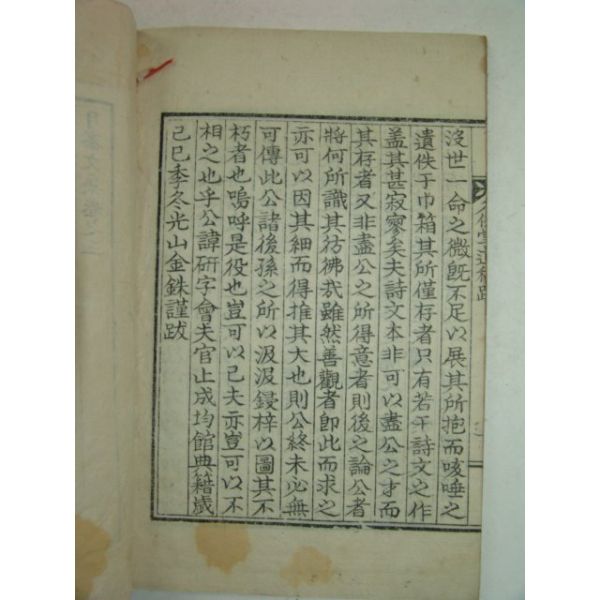 沒世一命之微旣不足以展其所抱而咳唾之
遺佚于巾箱其所僅存者只有若干詩文之作
盖其甚寂寥矣夫詩文本非可以盡公之才而
其存者又非盡公之所得意者則後之論公者
將何所識其彷彿哉雖然善觀者卽此而求之
亦可以因其細而得推其大也則公終未必無
可傳此公諸後孫之所以汲汲鋟梓以圖其不
朽者也嗚呼是役也豈可以已夫亦豈可以不
相之也乎公諱硏字會夫官止成均館典籍歲
己巳季冬光山金銖謹跋